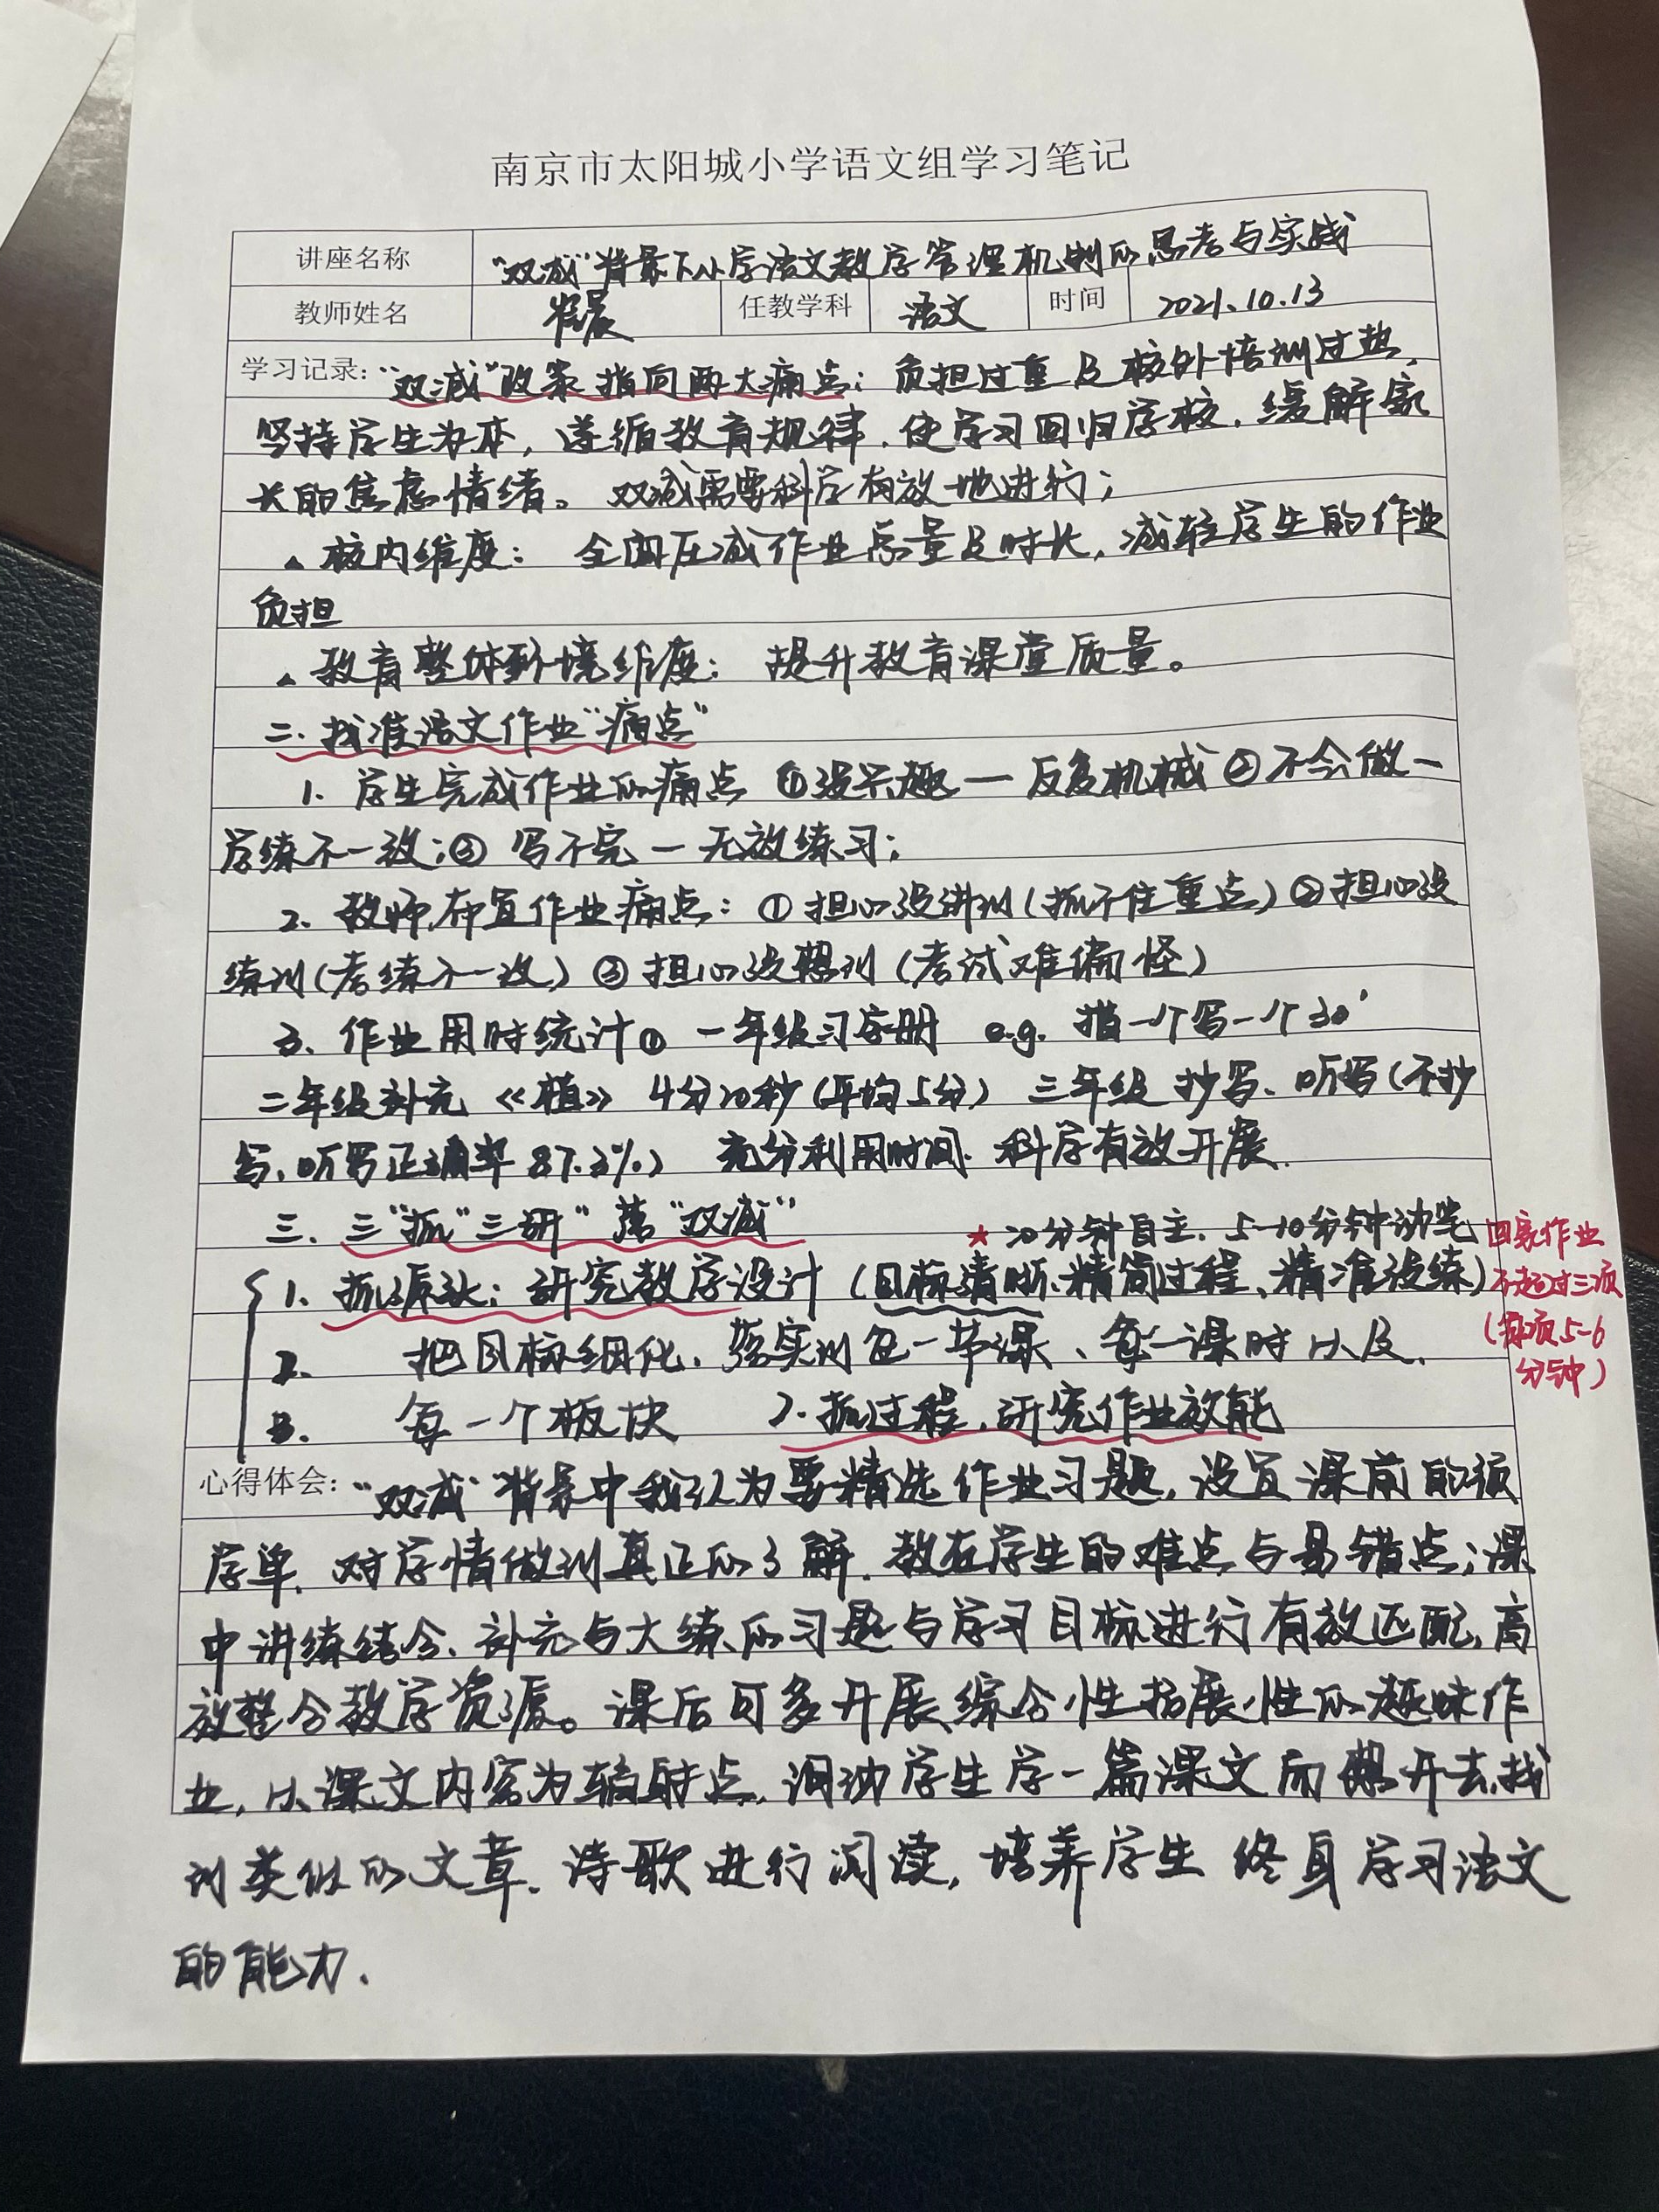 南京市太阳城小学语文组学习笔记
讲座名称 "双减"背景下小学语文教学管理机制的思考与实践
教师姓名 崔晨 任教学科 语文 时间 2021.10.13
学习记录："双减"政策指向两大痛点：负担过重及校外培训过热，
坚持学生为本，遵循教育规律，使学习回归学校，缓解家
长的焦虑情绪。双减需要科学有效地进行；
▲校内维度： 全面压减作业总量及时长，减轻学生的作业
负担
▲教育整体环境维度： 提升教育课堂质量。
二.找准语文作业"痛点"
1. 学生完成作业的痛点 ①没兴趣—反复机械 ②不会做—
学练不一致；③ 写不完—无效练习；
2. 教师布置作业痛点：①担心没讲到(抓不住重点)②担心没
练到(考练不一致)③担心没想到(考试难偏怪)
3. 作业用时统计① 一年级习字册 e.g. 描一个写一个30'
二年级补充《植》4分20秒(平均5分) 三年级抄写、听写(不抄
写、听写正确率87.3%) 充分利用时间、科学有效开展.
三. 三"抓"三研"落"双减"
★20分钟自主、5-10分钟动笔 回家作业
1. 抓源头：研究教学设计(目标清晰、精简过程、精准设练) 不超过三项
2. 把目标细化，落实到每一节课、每一课时以及 (每项5-6
3. 每一个板块 2.抓过程，研究作业效能 分钟)
心得体会："双减"背景中我认为要精选作业习题，设置课前的预
学单，对学情做到真正的了解，教在学生的难点与易错点；课
中讲练结合，补充与大练的习题与学习目标进行有效匹配，高
效整合教学资源。课后可多开展综合性拓展性的趣味作
业，以课文内容为辐射点，调动学生学一篇课文而想开去，找
到类似的文章、诗歌进行阅读，培养学生终身学习语文
的能力.